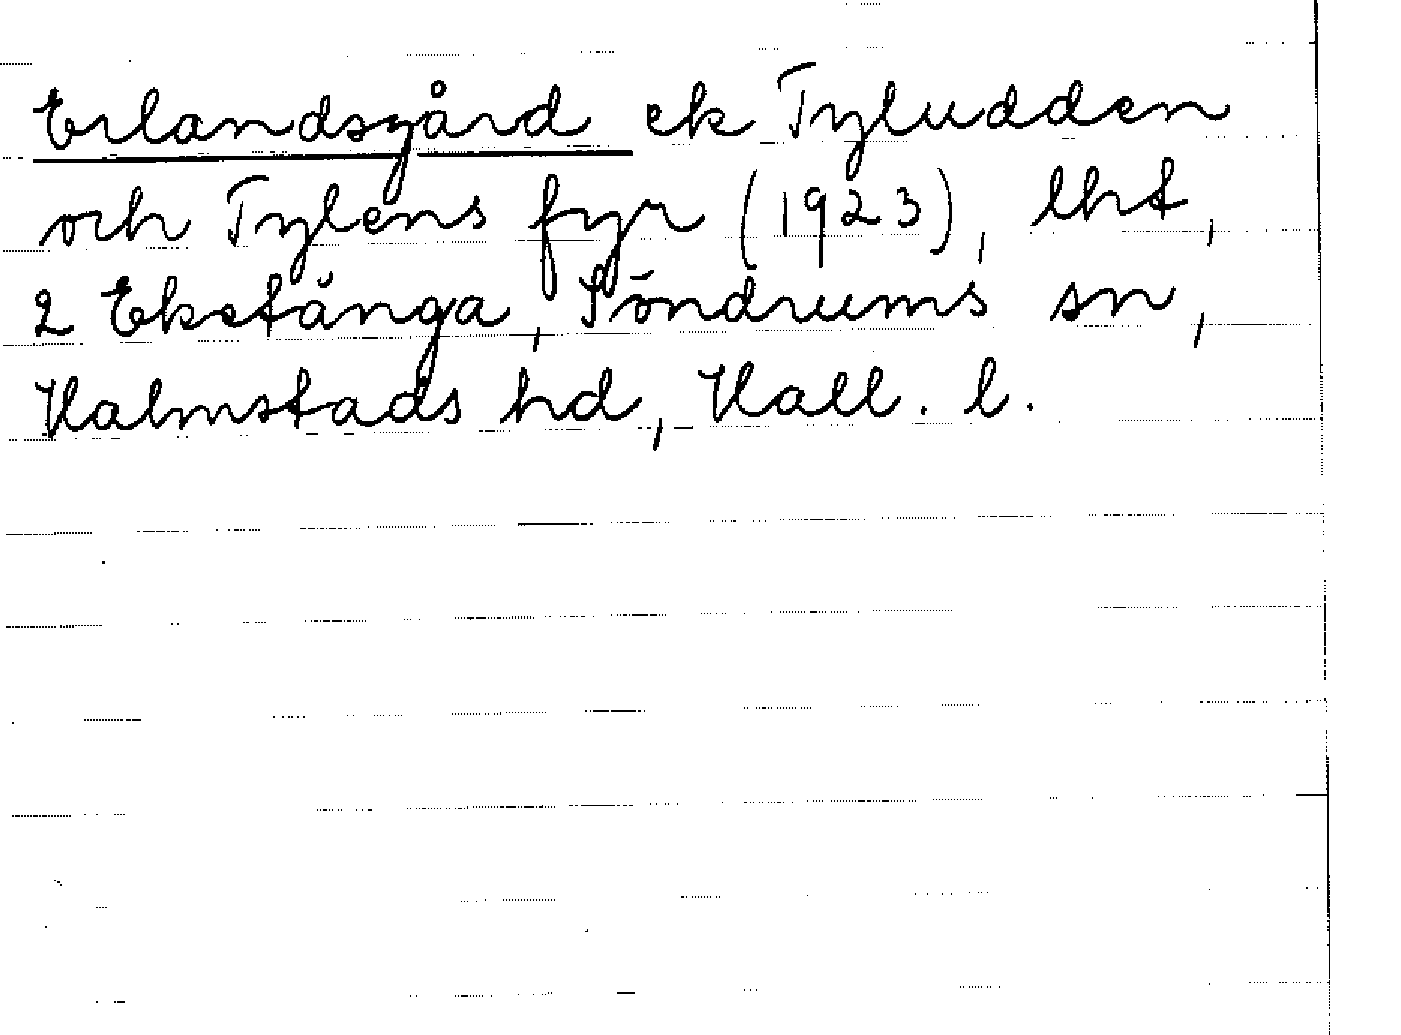 Erlandsgård ek Tyludden
och Tylens fyr (1923), lht,
2 Ekstånga, Söndrums sn,
Halmstads hd, Hall. l.